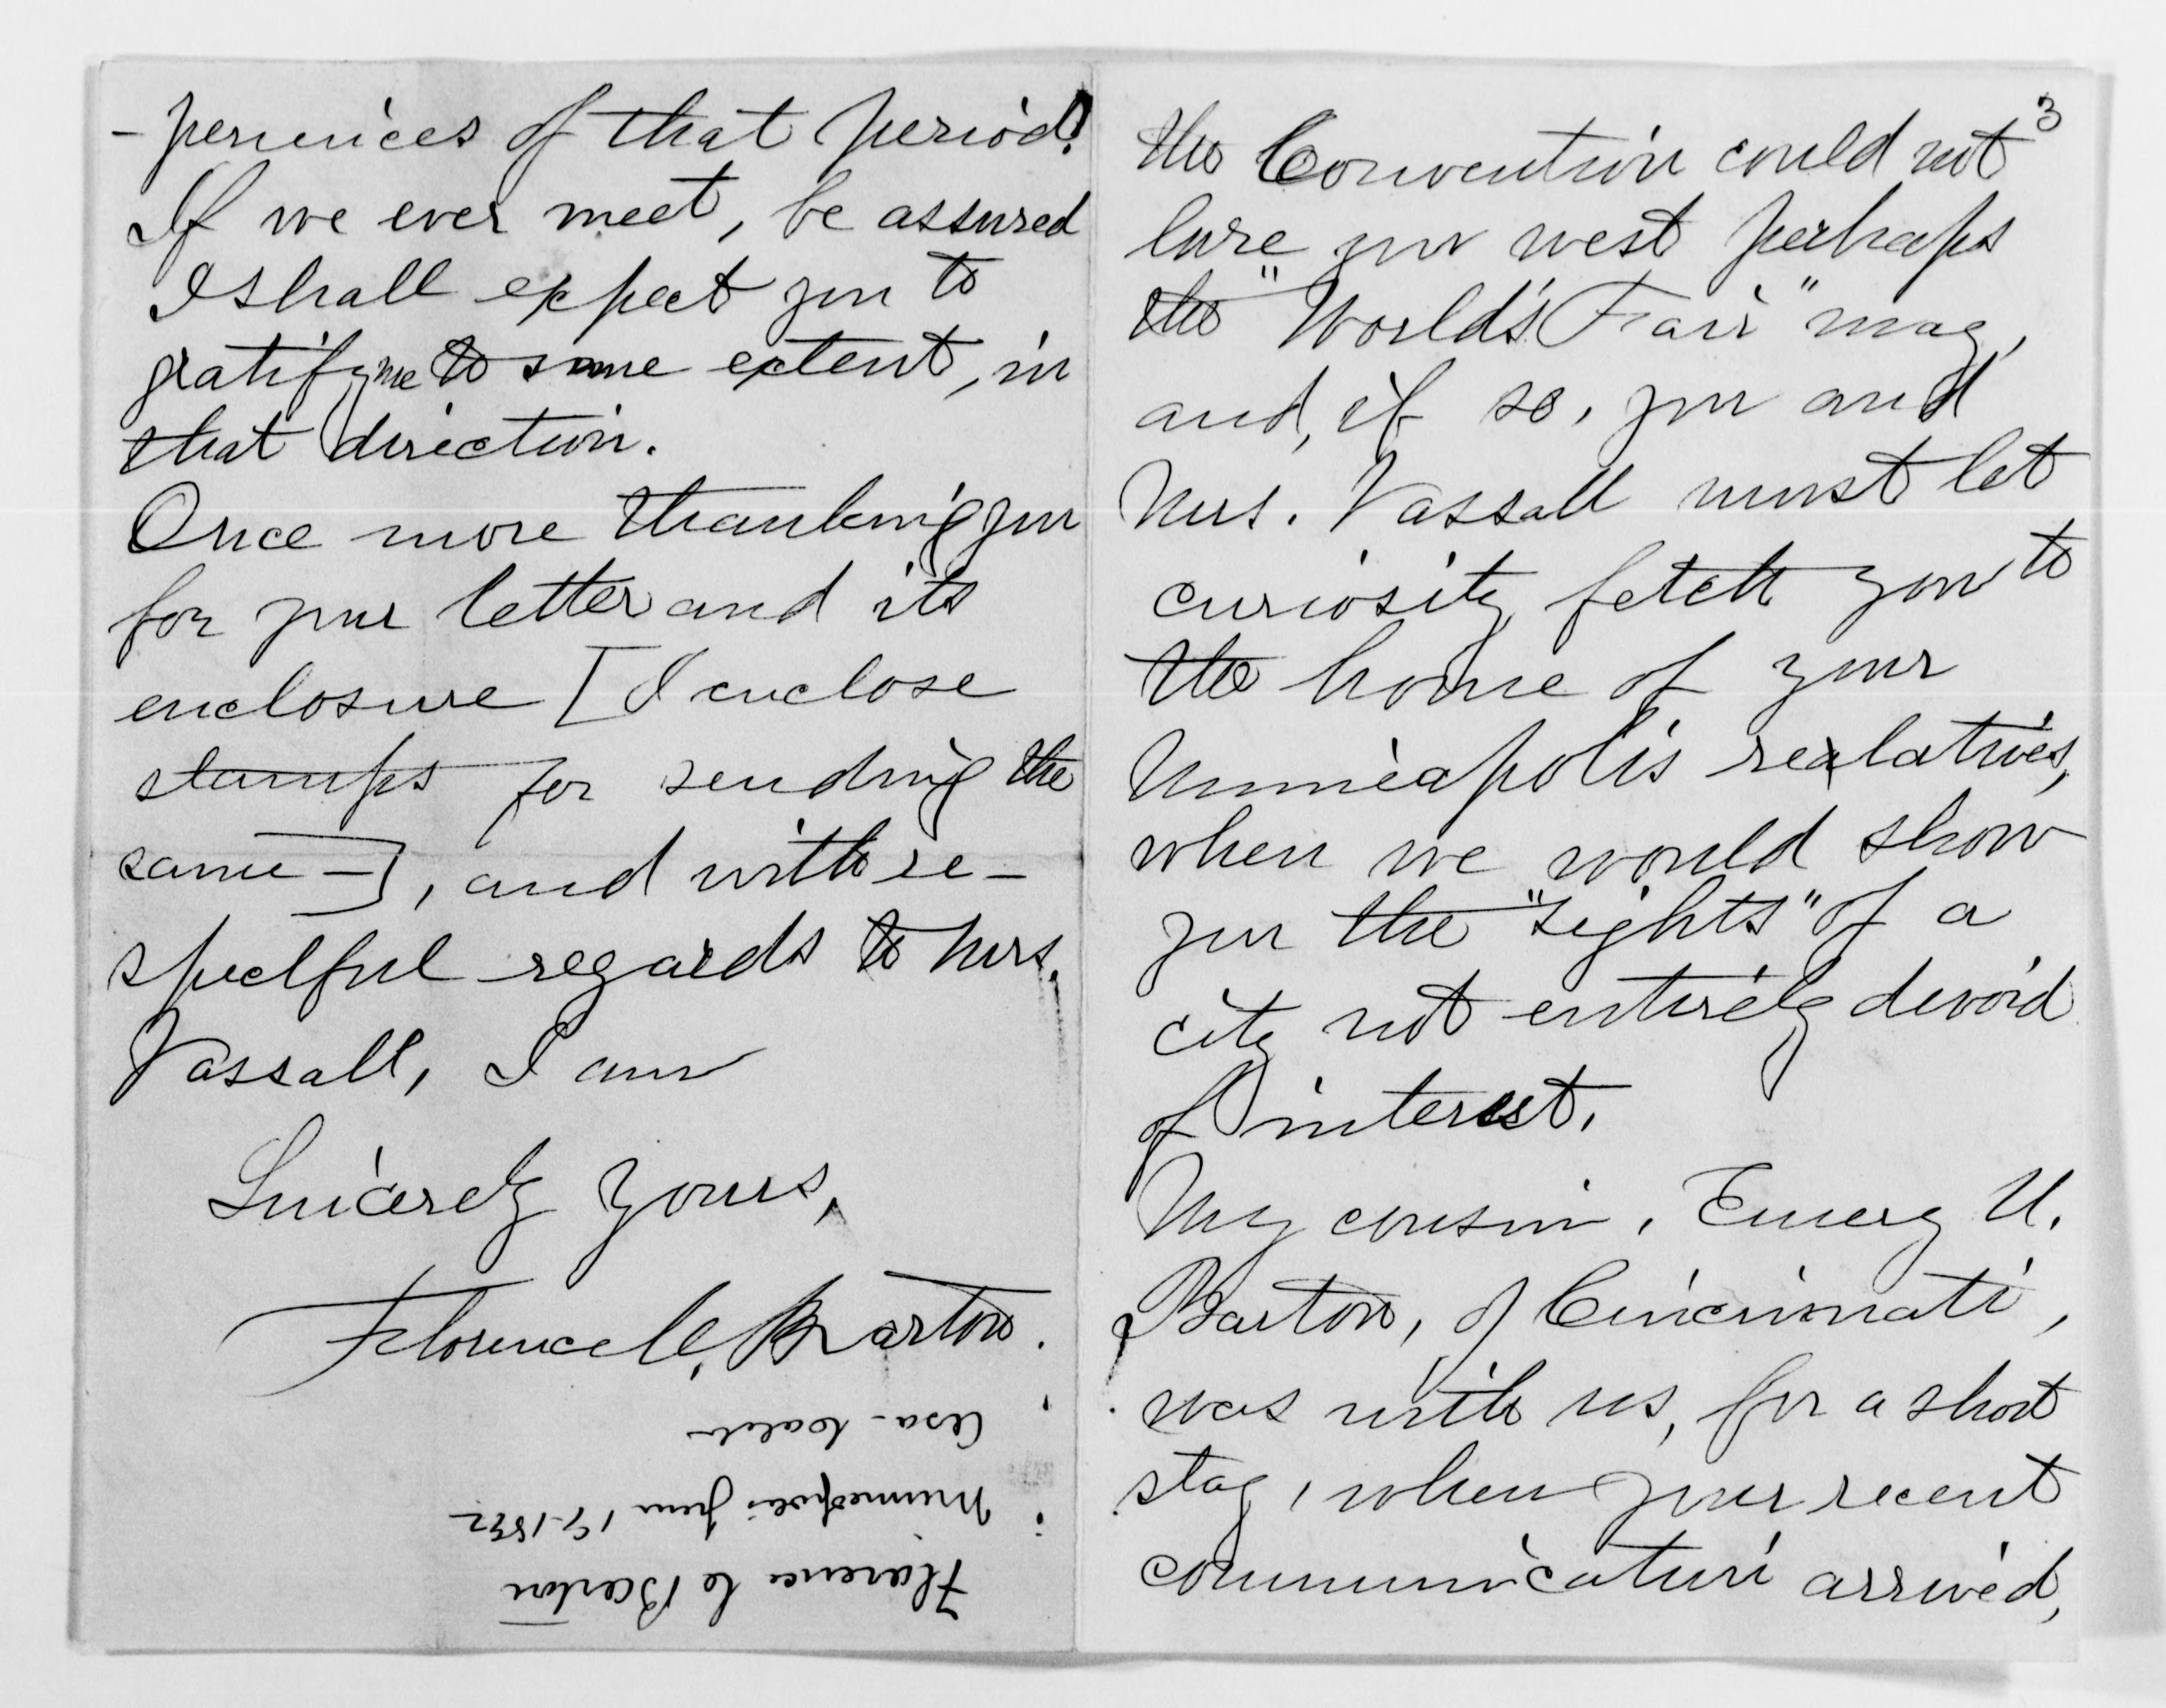 -periences of that period!
If we ever meet, be assured
I shall expect you to
gratify me to some extent, in
that direction.
Once more thanking you
for your letter and its
enclosure [I enclose
stamps for sending the
same-], and with re-
spectful regards to Mrs.
Vassall, I am
Sincerely Yours,
Florence C. Barton.
Florence C Barton
Minneapolis June 19-1892
3
the Convention could not
lure you west perhaps
the "World's Fair" may,
and, if so, you and
Mrs. Vassall must let
curiosity fetch you to
the home of your
Minneapolis realatives,
when we would show
you the "sights" of a
city not entirely devoid
of interest.
My cousin, Emery U.
Barton, of Cincinnati,
was with us, for a short
stay, when your recent
communication arrived,